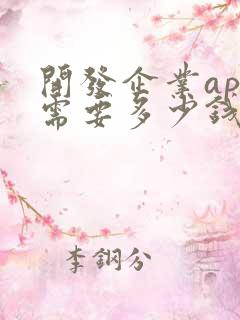 開發企業ap
需要多少錢
李鋼分